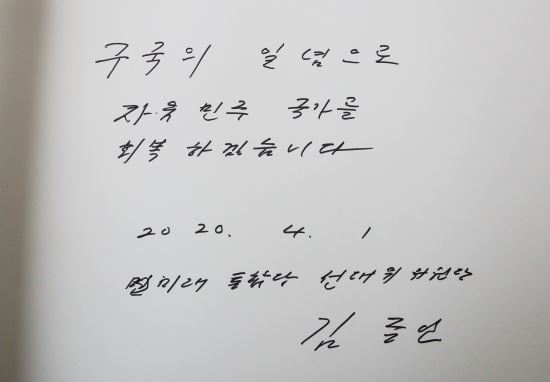 구국의 일념으로
자유 민주 국가를
회복 하겠습니다
2020. 4. 1
미래 통합당 선대위 위원장
김 종인